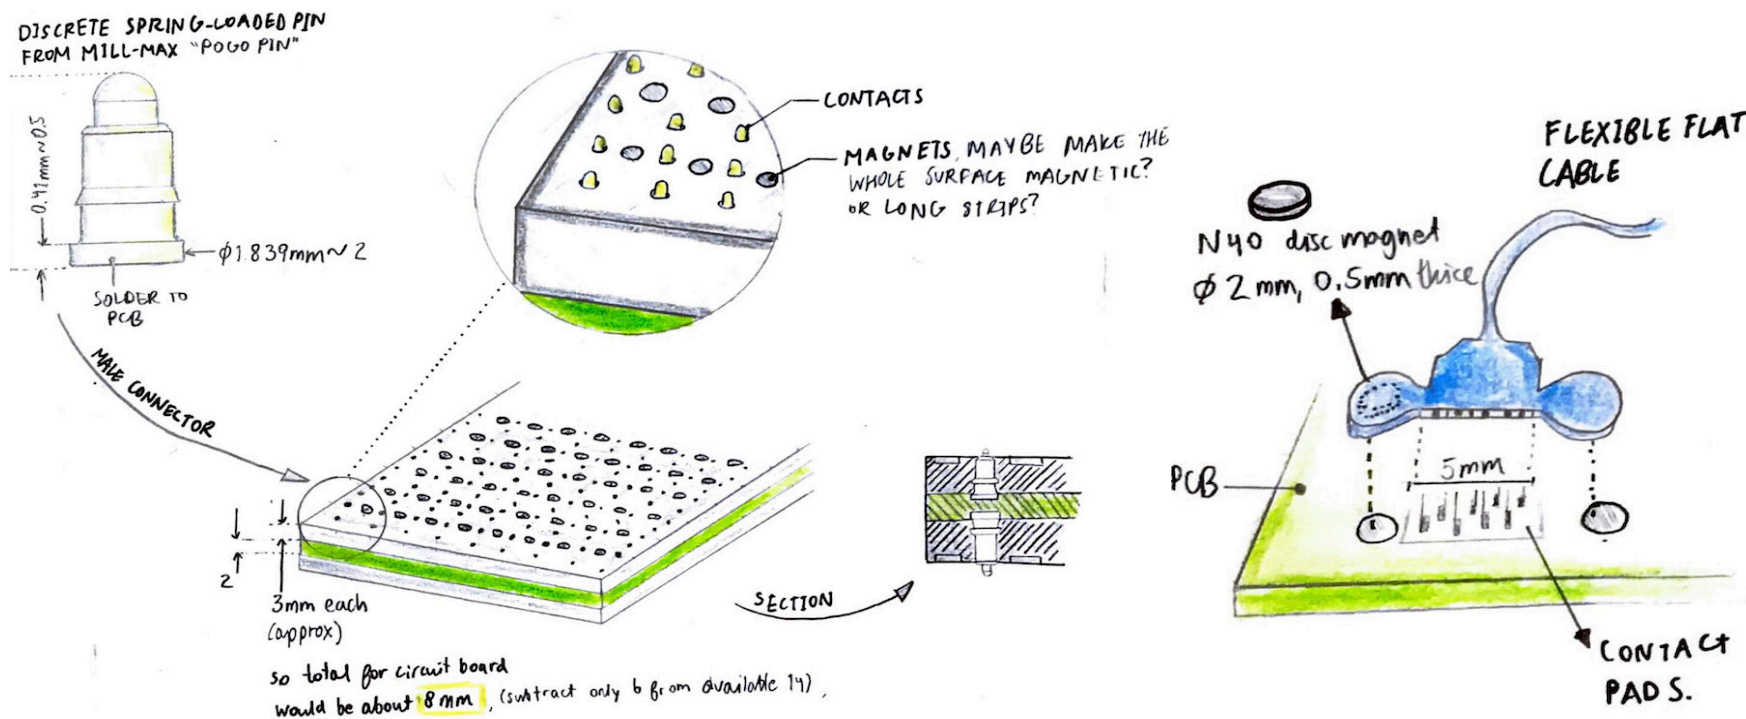 DISCRETE SPRING-LOADED PIN
FROM MILL-MAX "POGO PIN"
0.41mm~0.5
φ1.839mm~2
SOLDER TO
PCB
MALE CONNECTOR
CONTACTS
MAGNETS, MAYBE MAKE THE
WHOLE SURFACE MAGNETIC?
OR LONG STRIPS?
2
3mm each
(approx)
so total for circuit board
would be about 8mm, (subtract only 6 from available 14),
SECTION
FLEXIBLE FLAT
CABLE
N40 disc magnet
φ2mm, 0.5mm thice
PCB
5mm
CONTACT
PADS.